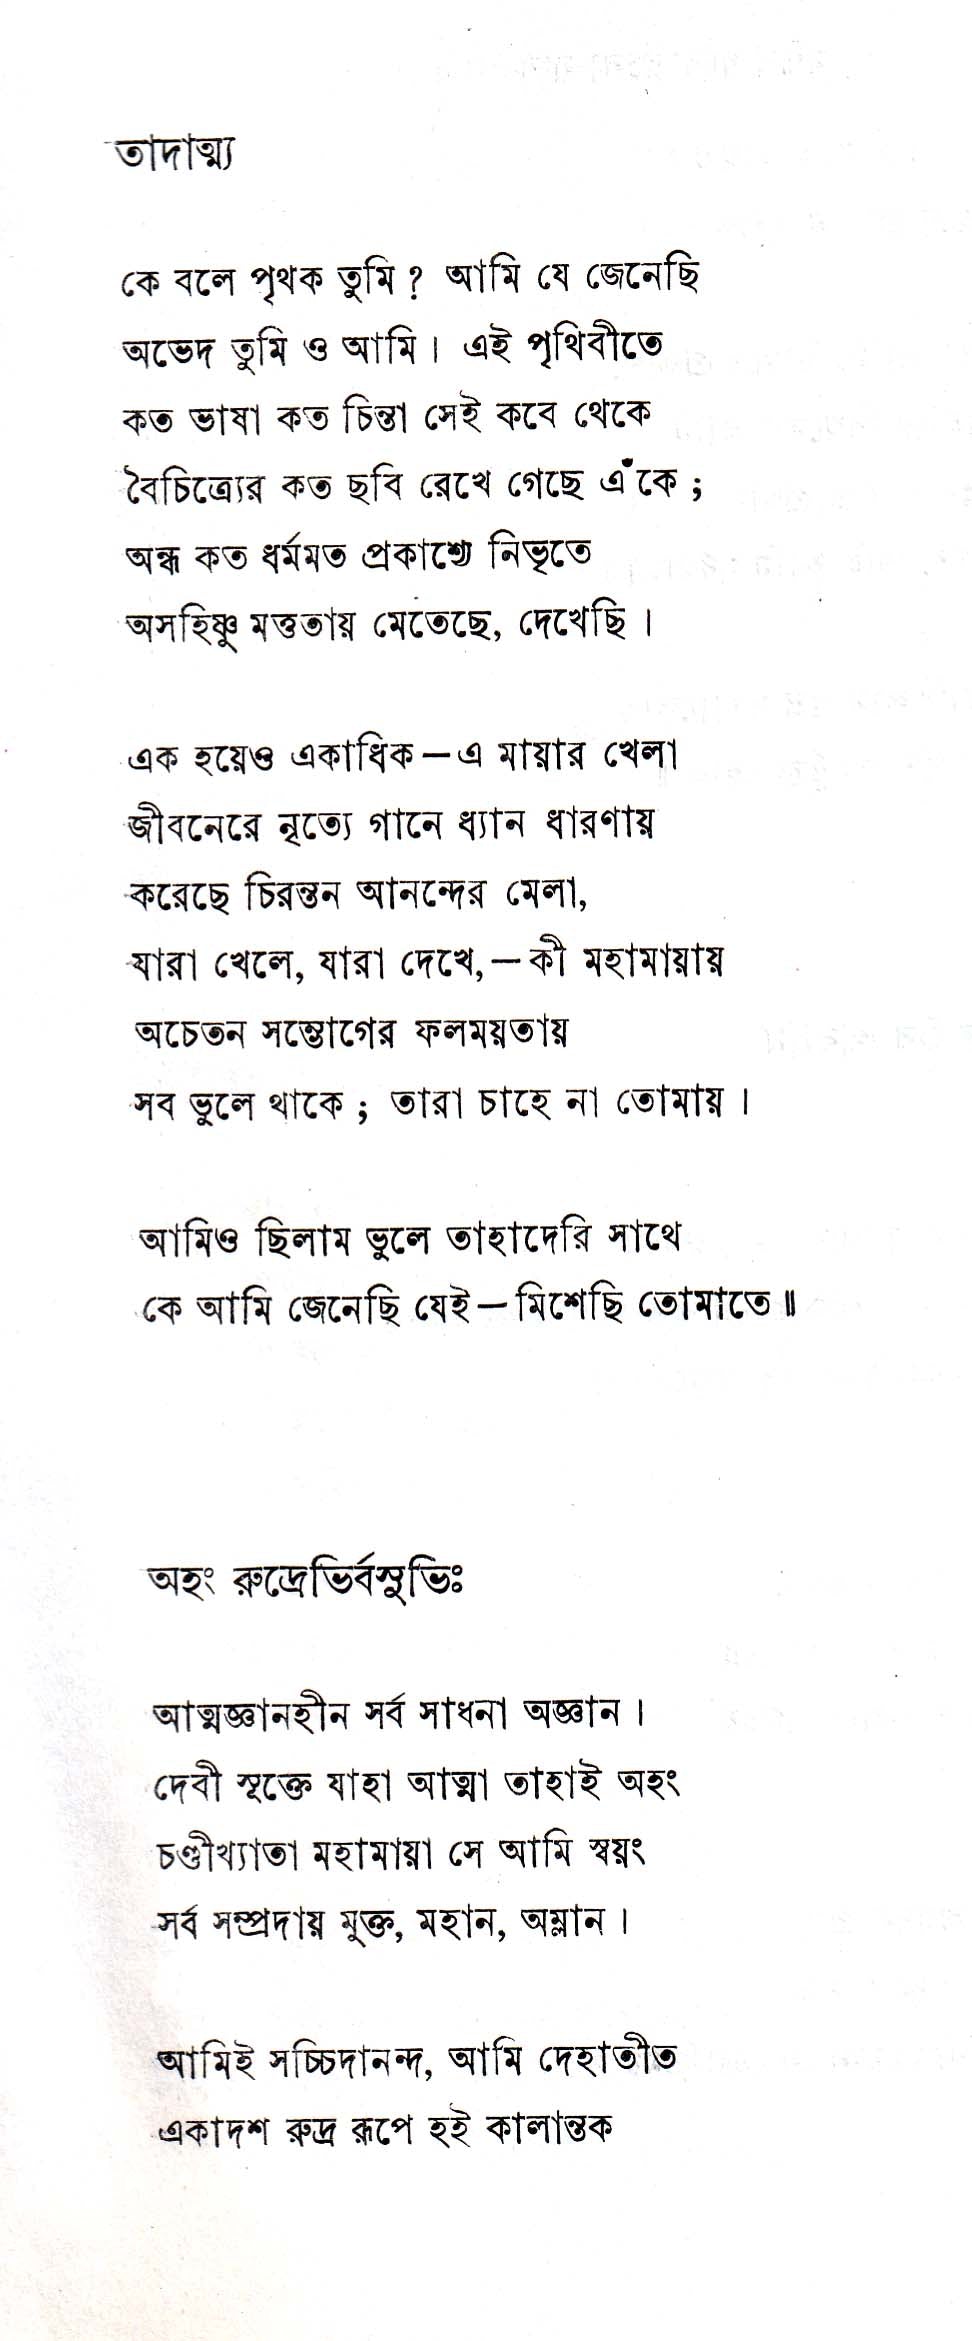 তাদাত্ম্য
কে বলে পৃথক তুমি ? আমি যে জেনেছি
অভেদ তুমি ও আমি । এই পৃথিবীতে
কত ভাষা কত চিন্তা সেই কবে থেকে
বৈচিত্র্যের কত ছবি রেখে গেছে এঁকে ;
অন্ধ কত ধর্মমত প্রকাশ্যে নিভৃতে
অসহিষ্ণু মত্ততায় মেতেছে, দেখেছি ।
এক হয়েও একাধিক — এ মায়ার খেলা
জীবনেরে নৃত্যে গানে ধ্যান ধারণায়
করেছে চিরন্তন আনন্দের মেলা,
যারা খেলে, যারা দেখে, — কী মহামায়ায়
অচেতন সম্ভোগের ফলময়তায়
সব ভুলে থাকে ; তারা চাহে না তোমায় ।
আমিও ছিলাম ভুলে তাহাদেরি সাথে
কে আমি জেনেছি যেই — মিশেছি তোমাতে ॥
অহং রুদ্রেভির্বসুভিঃ
আত্মজ্ঞানহীন সর্ব সাধনা অজ্ঞান ।
দেবী সূক্তে যাহা আত্মা তাহাই অহং
চণ্ডীখ্যাতা মহামায়া সে আমি স্বয়ং
সর্ব সম্প্রদায় মুক্ত, মহান, অম্লান ।
আমিই সচ্চিদানন্দ, আমি দেহাতীত
একাদশ রুদ্র রূপে হই কালান্তক